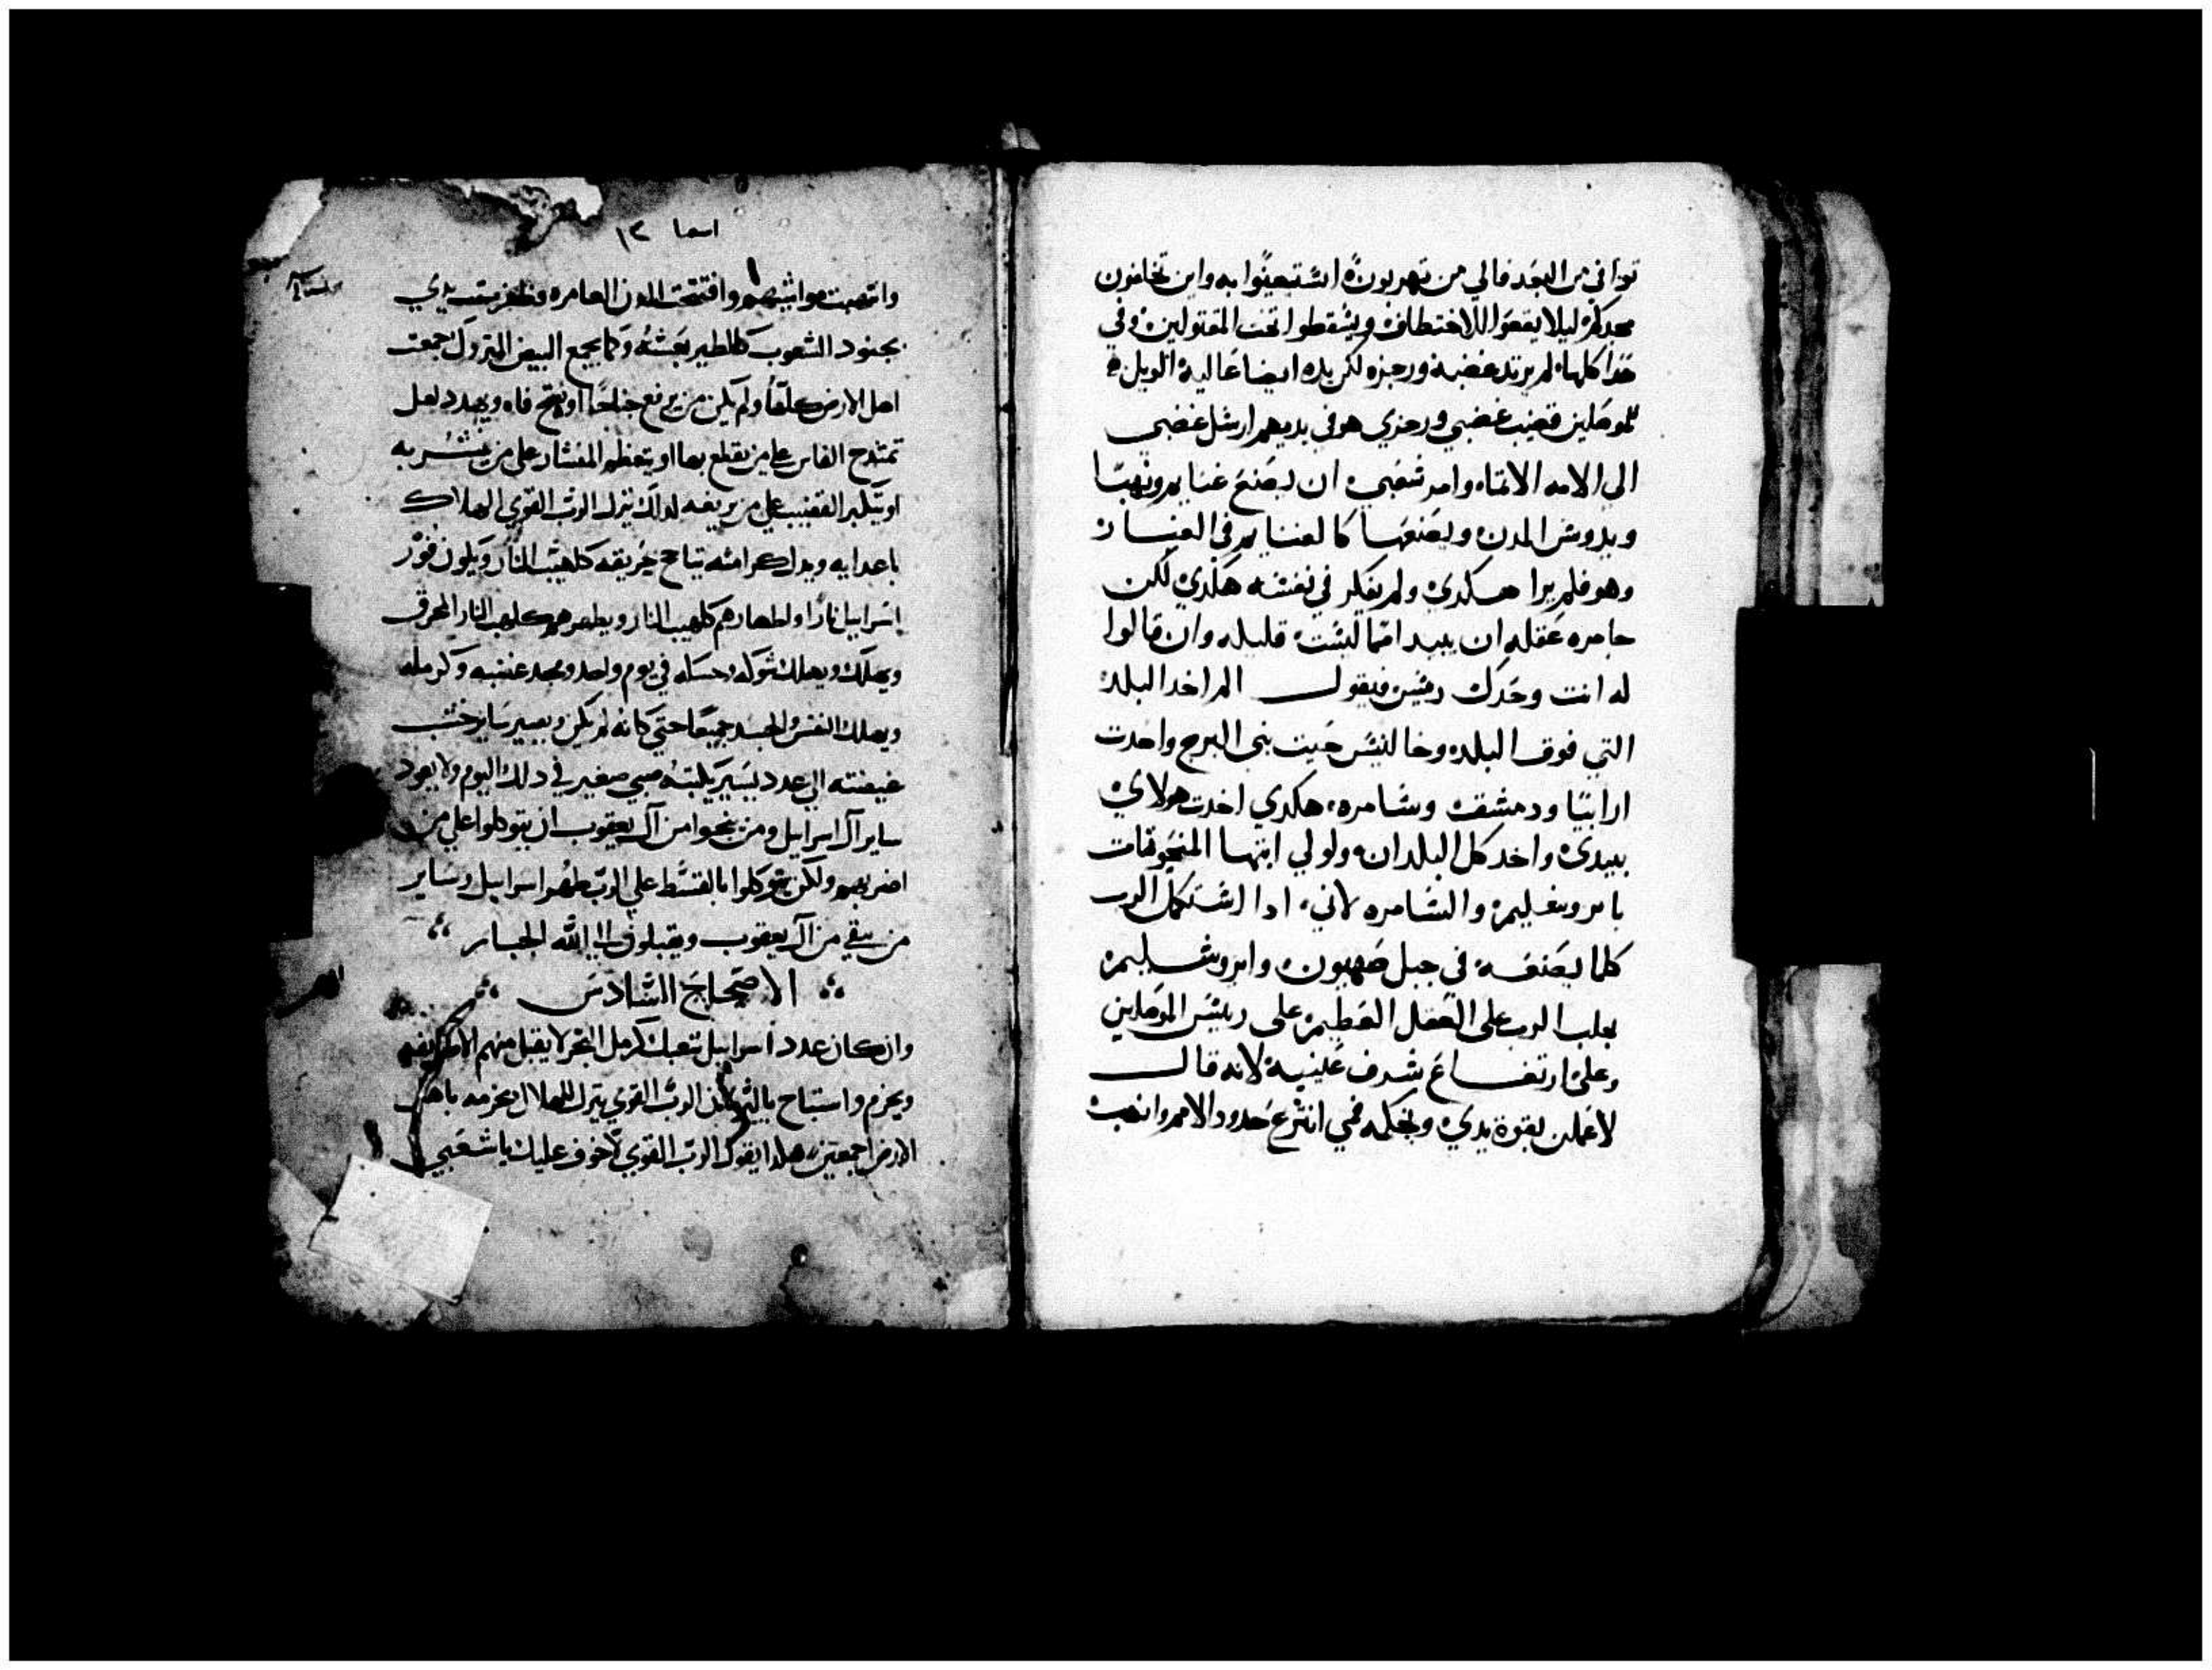 توافي من البعد فالي من تهربون استعينوا به واين تخلفون
مجدكم ليلا يقعوا للاختطاف ويسقطوا تحت المقتولين وفي
هدا كلها لم يرتد غضبه ورجزه لكن يده ايضا عاليه الويل
للموصلين قضيب غضبي ورجزي هو في يديهم ارسل غضبي
الي الامه الاثمه وامر شعبي ان يصنع غنايم ونهبا
ويدوس المدن ويصنعها كالغنايم في الغبار
وهو فلم يرا هكدي ولم يفكر في نفسه هكدي لكن
خامره عقله ان يبيد امما ليست قليله وان قالوا
له انت وحدك ريس فيقول الم اخد البلد
التي فوق البلده وخالنيس حيت بني البرج واخدت
ارابيا ودمشق وسامره هكدي اخدت هولاي
بيدي واخد كل البلدان ولولي ايتها المنحوتات
بايروشليم والسامره لاني ادا استكمل الرب
كلما يصنعه في جبل صهيون وايروشليم
يجلب الرب علي العقل العظيم علي ريس الموصلين
وعلي ارتفاع شرف عينيه لانه قال
لاعملن بقوة يدي وبحكمه فمي انتزع حدود الامم وانهب
اسعيا ١٢
وانتهبت مواشيهم وافتتحت المدن العامره وظفرت يدي
بجنود الشعوب كالطير بعشه وكما يجمع البيض المتروك جمعت
اهل الارض كلها ولم يكن من يرفع جناحا او يفتح فاه ويهدد لعل
تمتدح الفاس علي من يقطع بها او يتعظم المنشار علي من ينشر به
او يتكبر القضيب علي من يرفعه لدلك ينزل الرب القوي الهلاك
باعدايه وبدل كرامته يتاجج حريقه كلهيب النار ويكون نور
اسراييل نارا واطهارهم كلهيب النار ويطهرهم كلهيب النار المحرق
ويهلك ويهلك شوكه وحسكه في يوم واحد ومجد عشبه وكرمله
ويهلك النفس والجسد جميعا حتي كانه لم يكن ويصير ساير خشب
غيضته الي عدد يسير يكتبه صبي صغير في دلك اليوم ولا يعود
ساير آل اسراييل ومن ينجوا من آل يعقوب ان يتوكلوا علي من
اضر بهم ولكن يتوكلوا بالقسط علي الرب طهر اسراييل وساير
من بقي من آل يعقوب ويقبلون الي الله الجبار
الاصحاح السادس
وان كان عدد اسراييل شعبك كرمل البحر لا يقبل منهم الا
ويحزم واستباح الرب القوي ينزل الهلاك ويحزمه باهل
الارض اجمعين هكدا يقول الرب القوي لا خوف عليك يا شعبي